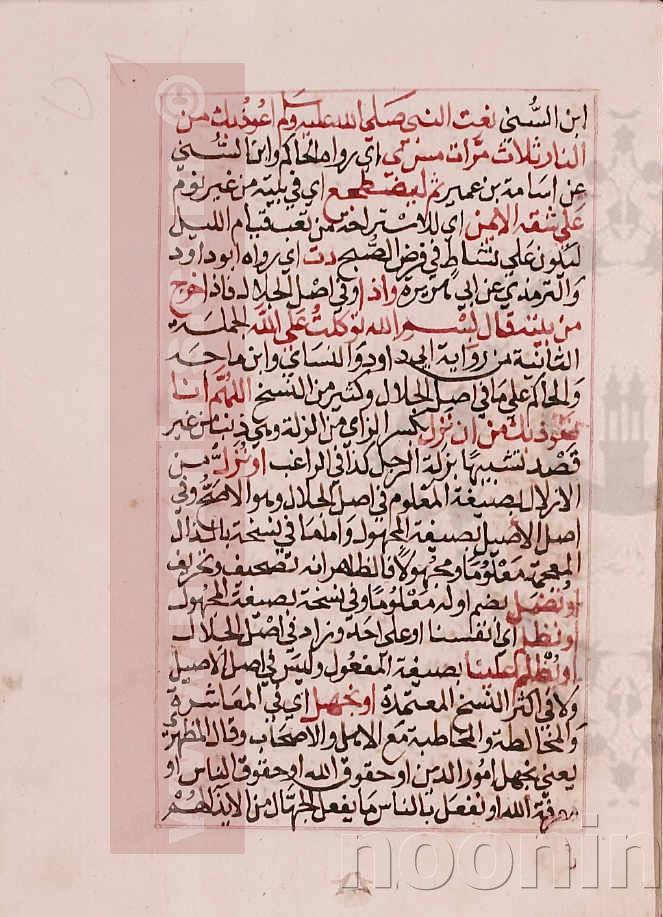 ابن السُّني نعت النبي صَلي الله عليه وسلم اعوذ بك من
النار ثلاث مرّات مس ى اي رواه الحاكم وابن السُّني
عن اسامة بن عمير ثم ليضطجع اي في بيته من غير نوم
على شقه الايمن اي للاستراحة من تعب قيام الليل
ليكون على نشاط في فرض الصُّبح دت اي رواه ابو داود
والترمذي عن ابي هريرة واذا وفي اصل الجلال فاذا خرج
من بيته قال بسم الله توكلت على الله الجملة
الثانية من رواية ابي داود والنساي وابن ماجه
والحاكم على ما في اصل الجلال وكثير من النسخ اللهُمَّ انا
نعوذ بك من ان نَزِلَّ بكسر الزاي من الزلة وهي ذنب من غير
قَصْد تشبيها بزلة الرجل كذا في الراغب او نُزِلَّ من
الازلال بصيغة المعلوم في اصل الجلال وهو الاصَحُّ وفي
اصل الاصيل بصيغة المجهول واما ما في نسخة بالذال
المعجمة معلُومًا ومجهولًا فالظاهر انه تصحيف وتحريف
او نُضِل بضم اوله معلُومًا وفي نسخة بصيغة المجهول
او نظلم اي انفسنا او على احد وزاد في اصل الجلال
او يُظلم علينا بصيغة المفعول وليس في اصل الاصيل
ولا في اكثر النسخ المعتمدة او نجهل اي في المعاشرة
والمخالطة والمخاطبة مع الاهل والاصحاب وقال المظهر
يعني نجهل امور الدين او حقوق الله او حقوق الناس او
معرفة الله او نفعل بالناس ما يفعل الجهال من الايذاء لهم
noonin